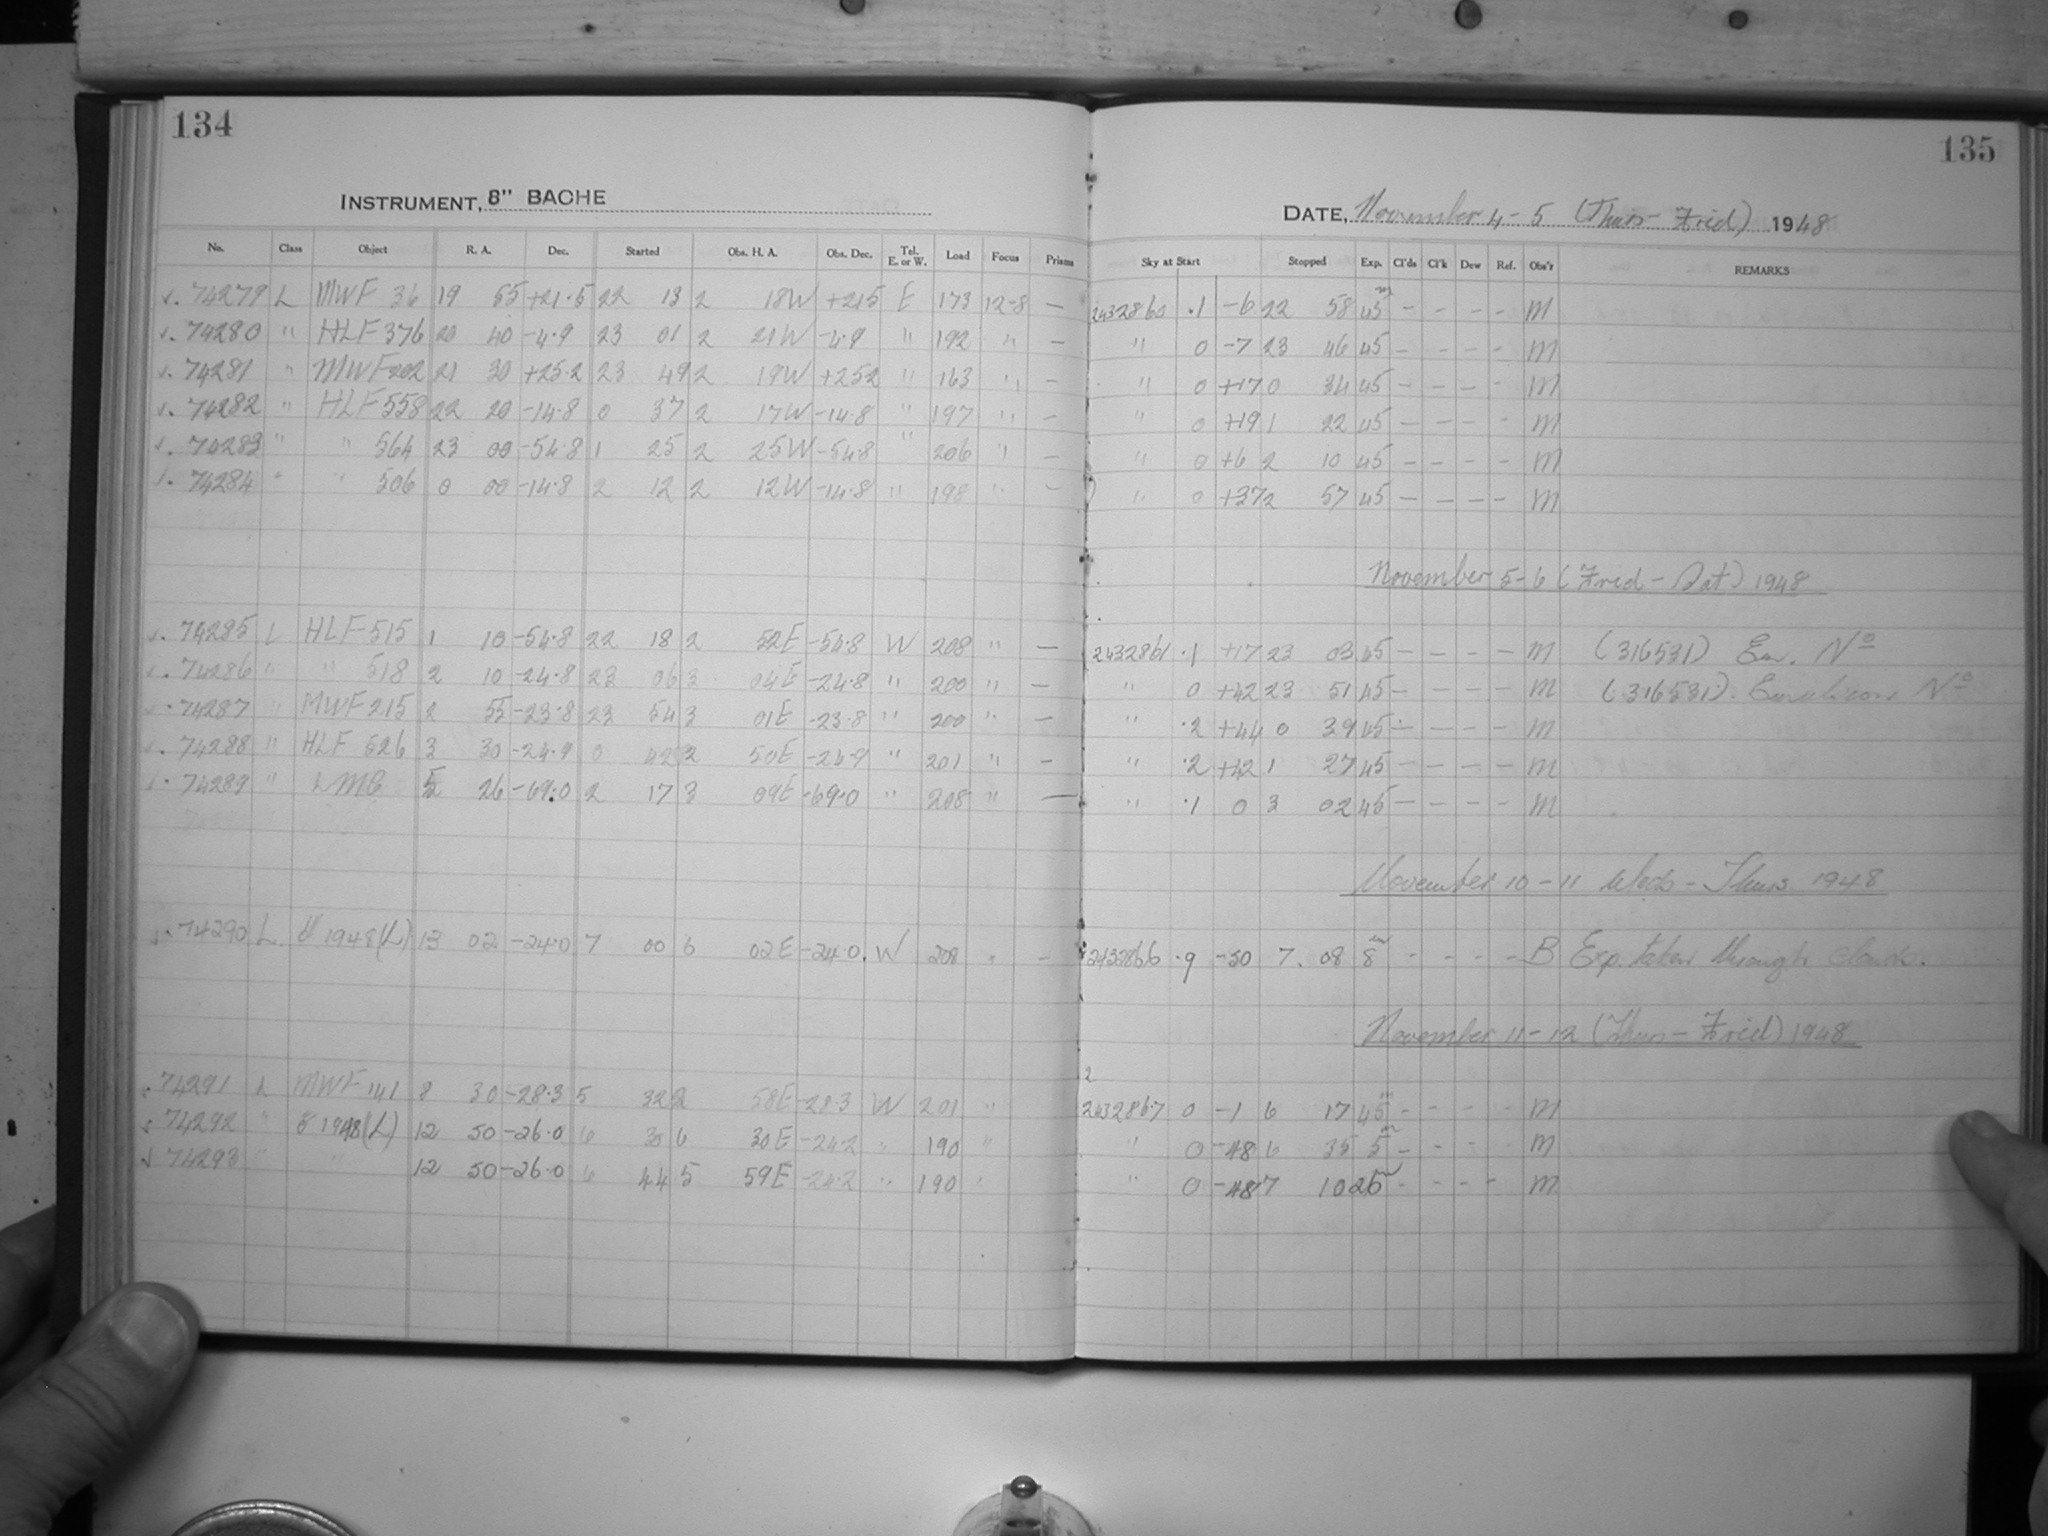 134
135
INSTRUMENT, 8" BACHE
DATE, November 4-5 (Thurs-Frid) 1948
No. Class Object R. A. Dec. Started Obs. H. A. Obs. Dec. Tel. E. or W. Load Focus Prisms Sky at Start Stopped Exp. Cl'ds Cl'k Dew Ref. Obs'r REMARKS
74279 L MWF 36 19 55 +21.5 22 13 2 18W +21.5 E 173 12-8 — 2432860 .1 -6 22 58 45m — — — — M
74280 " HLF 376 20 40 -4.9 23 01 2 21W -4.9 " 192 " — " 0 -7 23 46 45 — — — — M
74281 " MWF 202 21 30 +25.2 23 49 2 19W +25.2 " 163 " — " 0 +17 0 34 45 — — — — M
74282 " HLF 558 22 20 -14.8 0 37 2 17W -14.8 " 197 " — " 0 +19 1 22 45 — — — — M
74283 " " 564 23 00 -54.8 1 25 2 25W -54.8 " 206 " — " 0 +6 2 10 45 — — — — M
74284 " " 506 0 00 -14.8 2 12 2 12W -14.8 " 198 " — " 0 +37 2 57 45 — — — — M
November 5-6 (Frid-Sat) 1948
74285 L HLF 515 1 10 -54.8 22 18 2 52E -54.8 W 208 " — 2432861 .1 +17 23 03 45 — — — — M (316531) Em. No
74286 " " 518 2 10 -24.8 23 06 3 04E -24.8 " 200 " — " 0 +42 23 51 45 — — — — M (316531) Emulsion No
74287 " MWF 215 2 55 -23.8 23 54 3 01E -23.8 " 200 " — " .2 +44 0 39 45 — — — — M
74288 " HLF 526 3 30 -24.9 0 42 2 50E -24.9 " 201 " — " .2 +42 1 27 45 — — — — M
74289 " LMC 5 26 -69.0 2 17 3 09E -69.0 " 208 " — " .1 0 3 02 45 — — — — M
November 10-11 Weds-Thurs 1948
74290 L 1948(L) 13 02 -24.0 7 00 6 02E -24.0 W 208 " — 2432866 .9 -50 7 08 8m - - - - B Exp. taken through clouds.
November 11-12 (Thurs-Frid) 1948
74291 L MWF 141 8 30 -28.3 5 32 2 58E -28.3 W 201 " 2432867 0 -1 6 17 45m - - - - M
74292 " 1948(L) 12 50 -26.0 6 30 6 30E -24.2 " 190 " " 0 -48 6 35 5m - - - - M
74293 " " 12 50 -26.0 6 44 5 59E -24.2 " 190 " " 0 -48 7 10 25m - - - - M